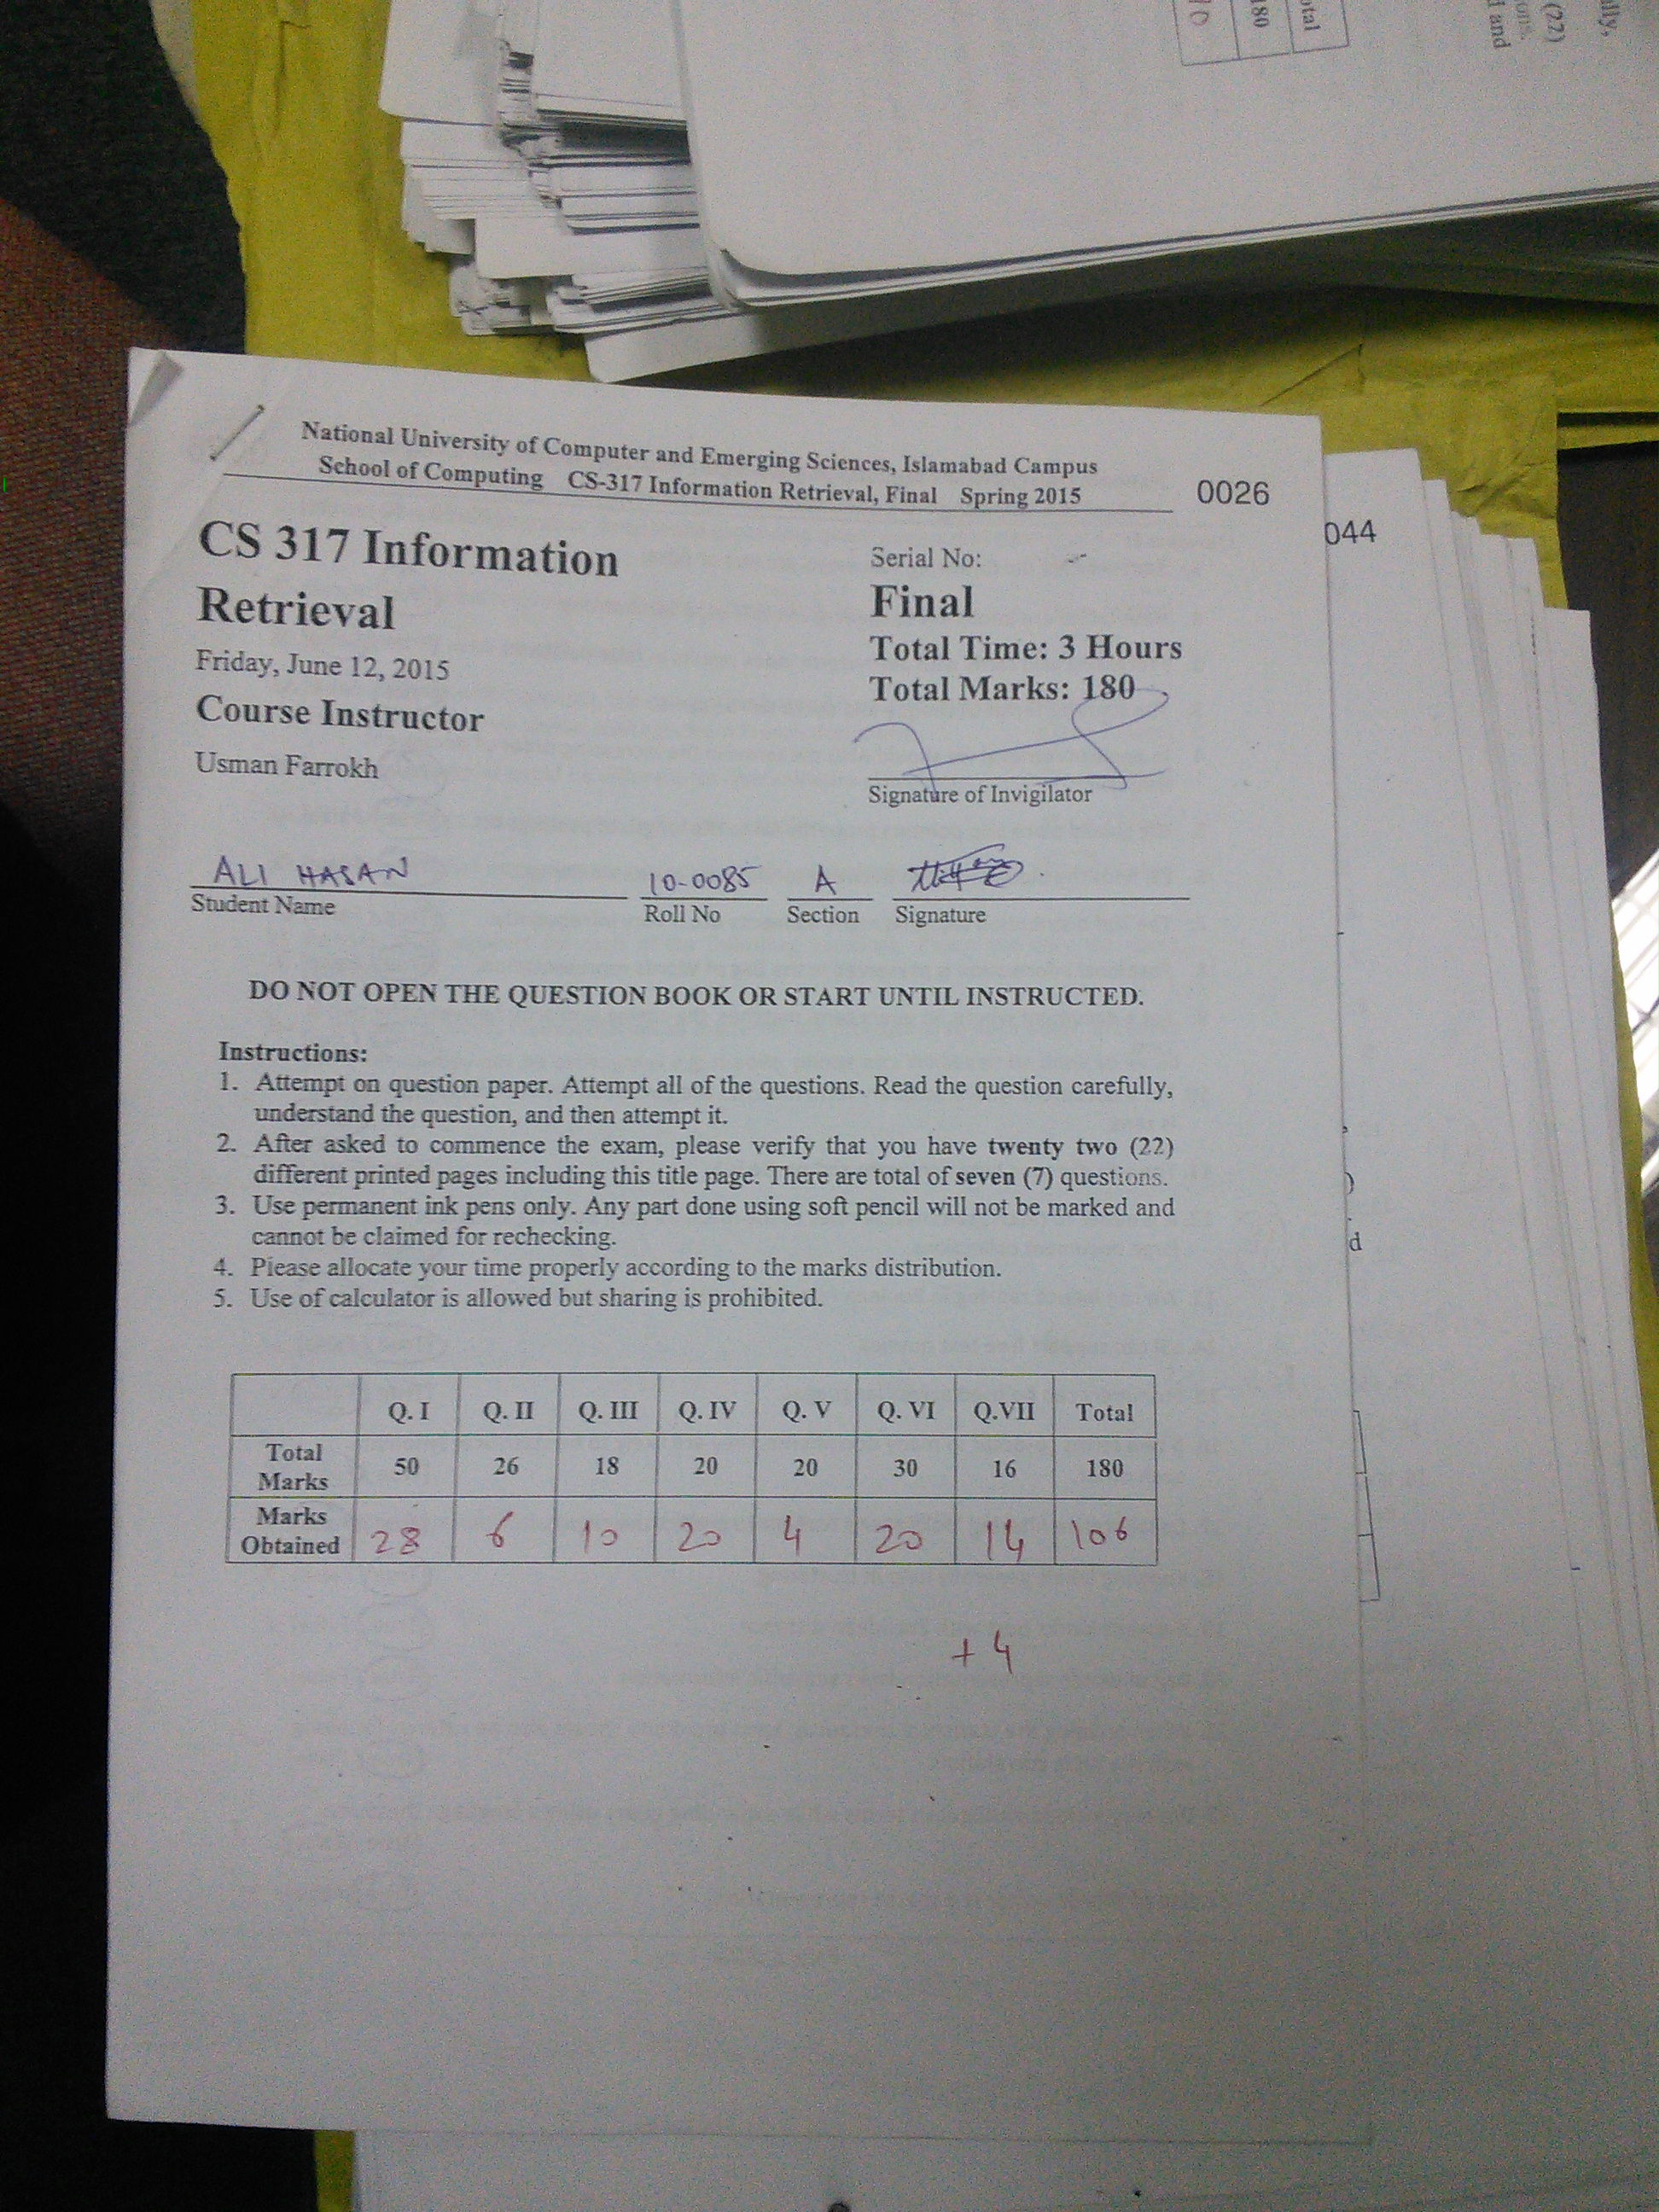 otal
180
10
ally,
(22)
ons.
d and
National University of Computer and Emerging Sciences, Islamabad Campus
School of Computing CS-317 Information Retrieval, Final Spring 2015
0026
044
CS 317 Information
Retrieval
Friday, June 12, 2015
Course Instructor
Usman Farrokh
Serial No:
Final
Total Time: 3 Hours
Total Marks: 180
Signature of Invigilator
ALI HASAN 10-0085 A
Student Name Roll No Section Signature
DO NOT OPEN THE QUESTION BOOK OR START UNTIL INSTRUCTED.
Instructions:
1. Attempt on question paper. Attempt all of the questions. Read the question carefully,
understand the question, and then attempt it.
2. After asked to commence the exam, please verify that you have twenty two (22)
different printed pages including this title page. There are total of seven (7) questions.
3. Use permanent ink pens only. Any part done using soft pencil will not be marked and
cannot be claimed for rechecking.
d
4. Please allocate your time properly according to the marks distribution.
5. Use of calculator is allowed but sharing is prohibited.
Q. I Q. II Q. III Q. IV Q. V Q. VI Q.VII Total
Total
Marks
50 26 18 20 20 30 16 180
Marks
Obtained
28 6 10 20 4 20 14 106
+4